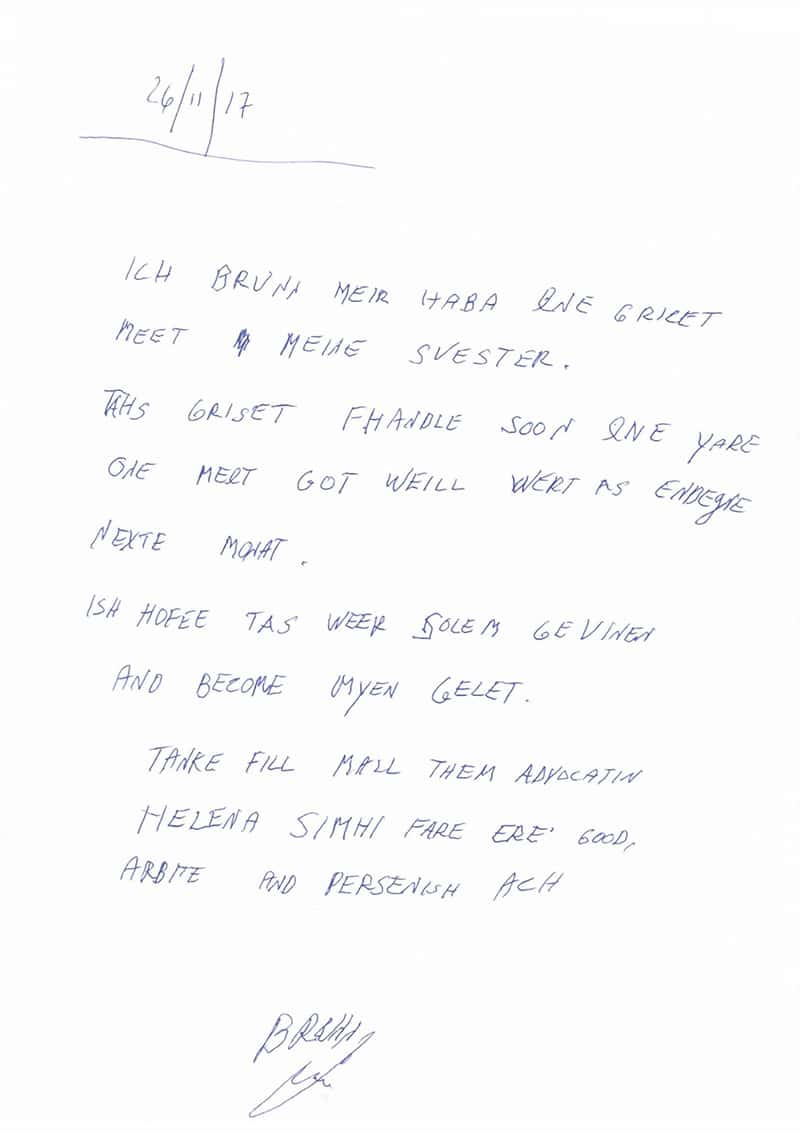 26/11/17
ICH BRUNN MEIR HABA INE GRICET
MEET MEINE SVESTER.
TAHS GRISET FHANDLE SOON INE YARE
ONE MEET GOT WEILL WERT AS ENDEGNE
NEXTE MONAT.
ISH HOFEE TAS WEER SOLEM GEVINEN
AND BECOME MYEN GELET.
TANKE FILL MALL THEM ADVOCATIN
HELENA SIMHI FARE ERE' GOOD,
ARBITE AND PERSENISH ACH